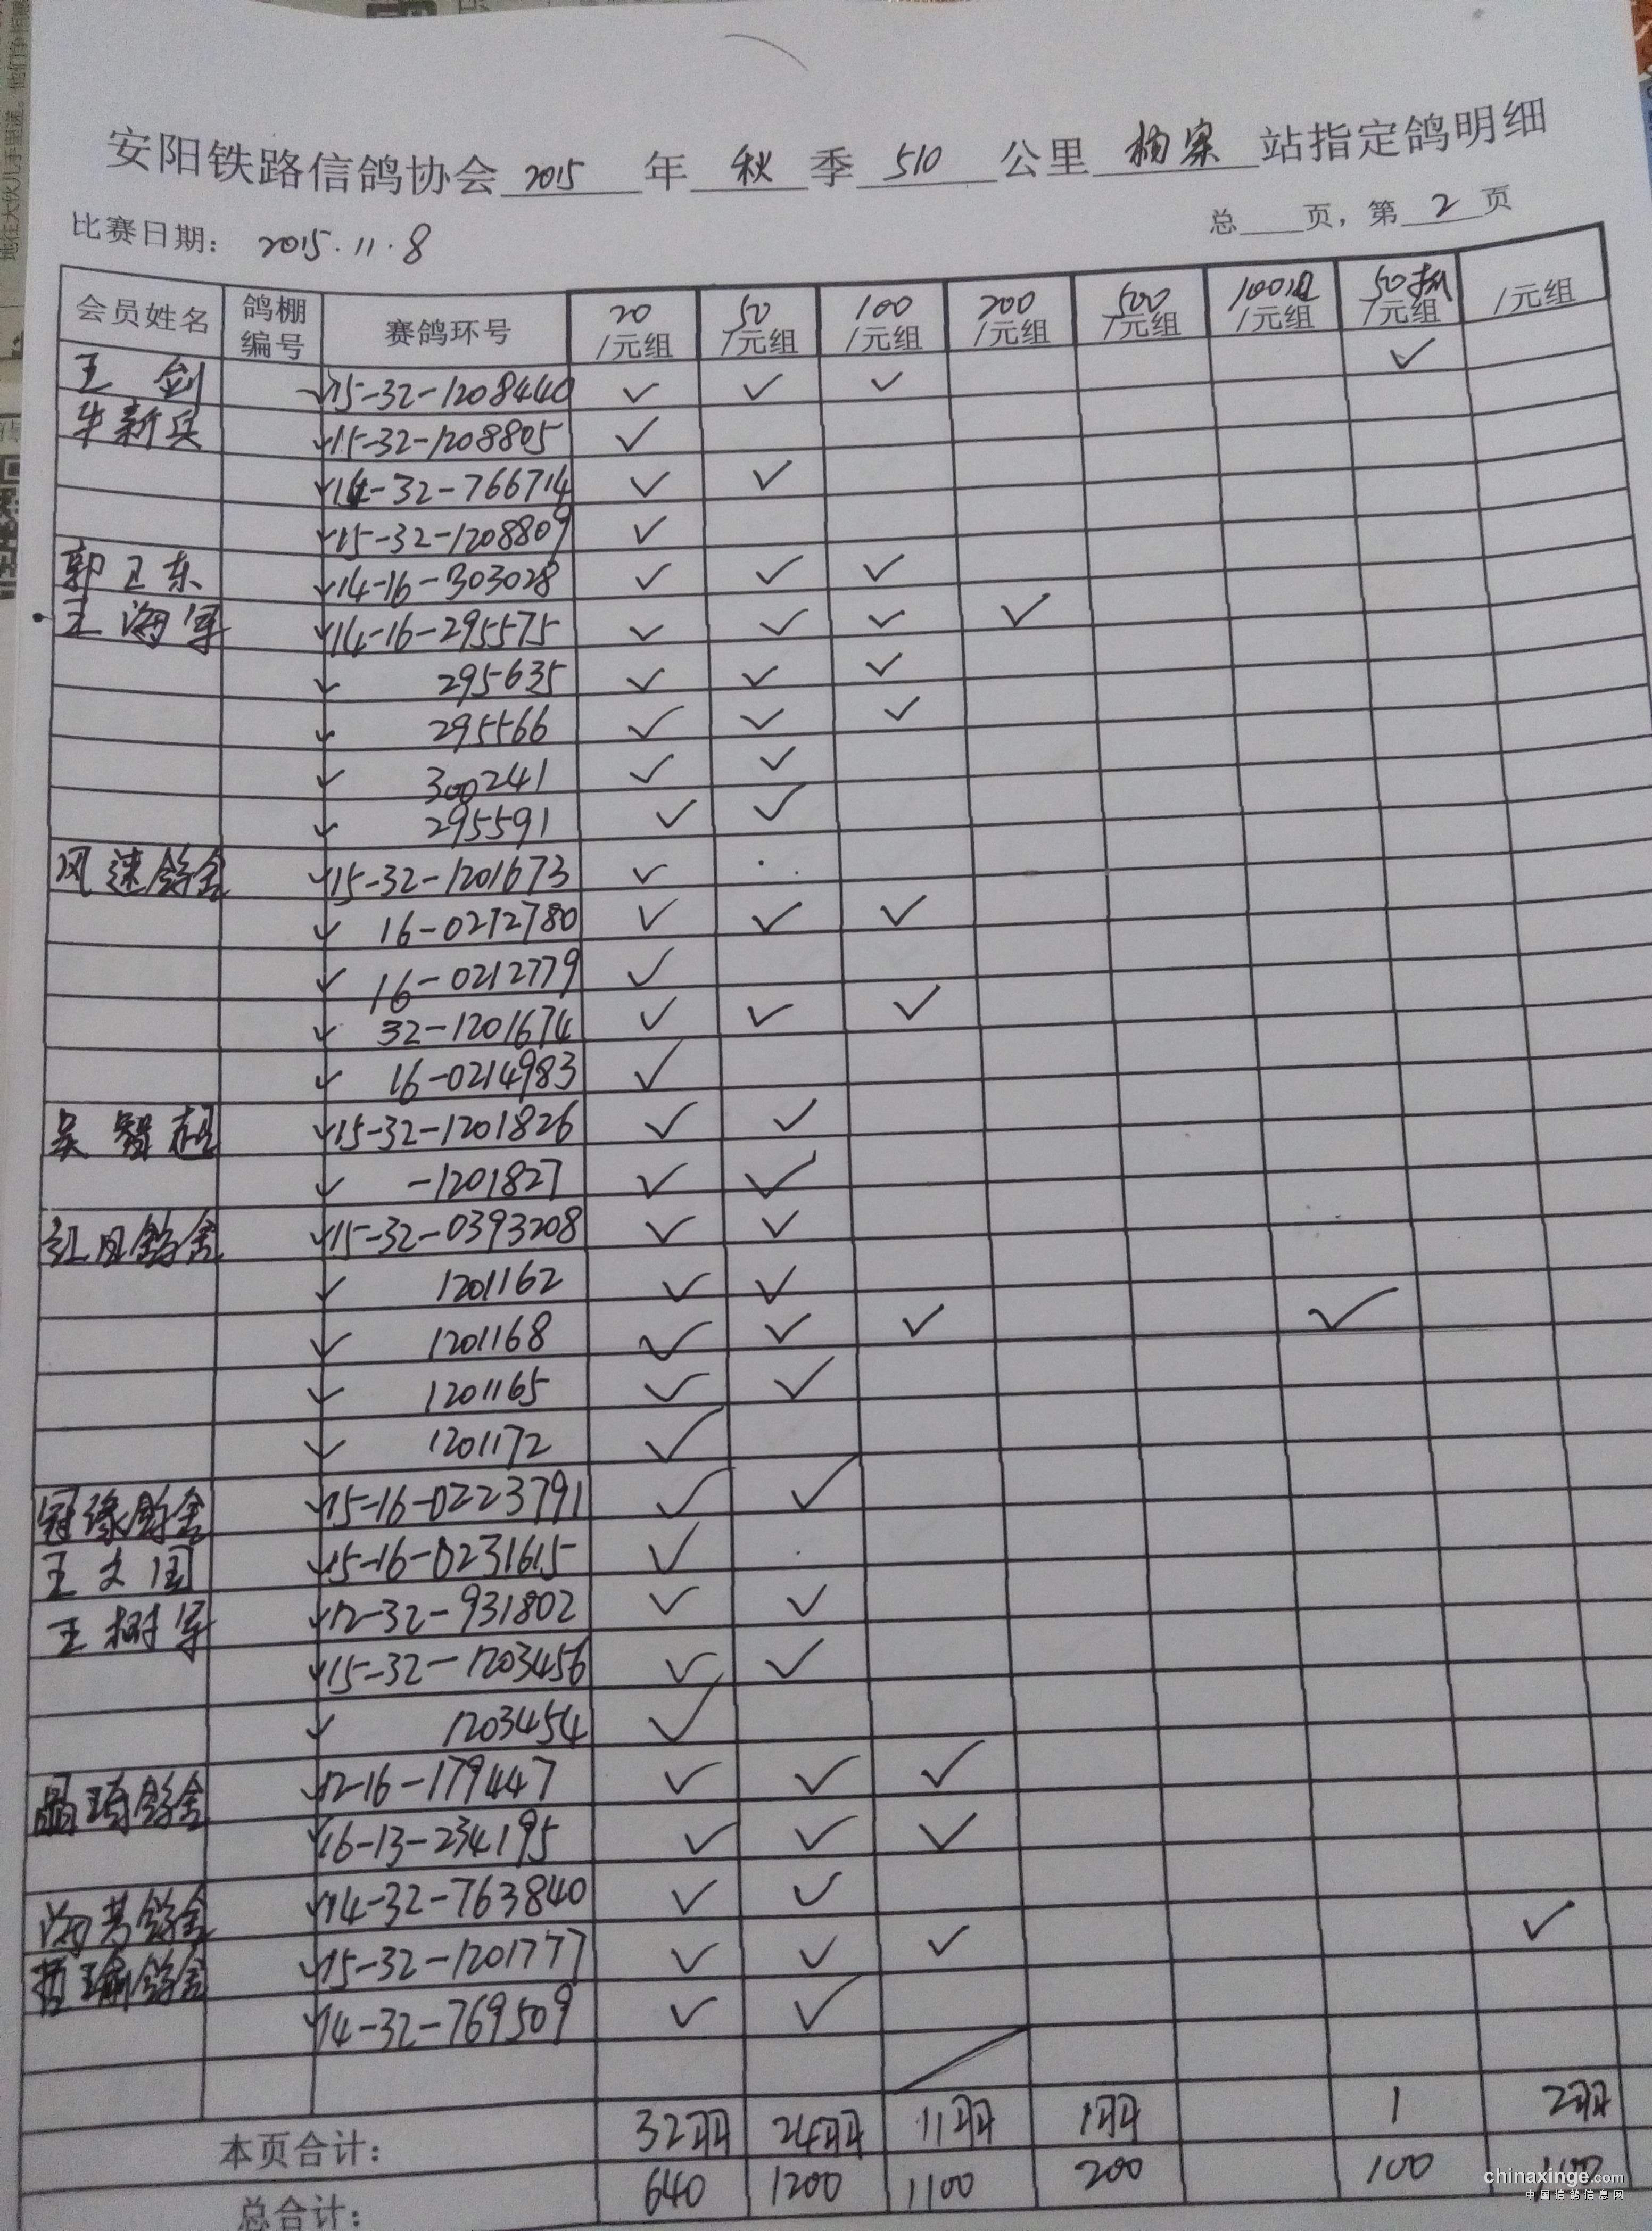 安阳铁路信鸽协会 2015 年 秋 季 510 公里 楠寨 站指定鸽明细
比赛日期： 2015.11.8 总 页，第 2 页
会员姓名 鸽棚编号 赛鸽环号 20/元组 50/元组 100/元组 200/元组 500/元组 100/元组 50/元组 /元组
王剑 ✓15-32-1208440 ✓ ✓ ✓ ✓
牛新兵 ✓15-32-1208805 ✓
✓14-32-766714 ✓ ✓
✓15-32-1208809 ✓
郭卫东 ✓14-16-303028 ✓ ✓ ✓
王海军 ✓14-16-295575 ✓ ✓ ✓ ✓
✓ 295635 ✓ ✓ ✓
✓ 295566 ✓ ✓ ✓
✓ 300241 ✓ ✓
✓ 295591 ✓ ✓
风速鸽舍 ✓15-32-1201673 ✓
✓ 16-0212780 ✓ ✓ ✓
✓ 16-0212779 ✓
✓ 32-1201674 ✓ ✓ ✓
✓ 16-0214983 ✓
吴智超 ✓15-32-1201826 ✓ ✓
✓ -1201827 ✓ ✓
红月鸽舍 ✓15-32-0393208 ✓ ✓
✓ 1201162 ✓ ✓
✓ 1201168 ✓ ✓ ✓ ✓
✓ 1201165 ✓ ✓
✓ 1201172 ✓
冠缘鸽舍 ✓15-16-0223791 ✓ ✓
王文国 ✓15-16-0231615 ✓
王树军 ✓12-32-931802 ✓ ✓
✓15-32-1203456 ✓ ✓
✓ 1203454 ✓
晶琦鸽舍 ✓12-16-179447 ✓ ✓ ✓
✓16-13-234195 ✓ ✓ ✓
海芳鸽舍 ✓14-32-763840 ✓ ✓
哲瑜鸽舍 ✓15-32-1201777 ✓ ✓ ✓ ✓
✓14-32-769509 ✓ ✓
本页合计： 32羽 24羽 11羽 1羽 1 2羽
总合计： 640 1200 1100 200 100
chinaxinge.com
中国信鸽信息网